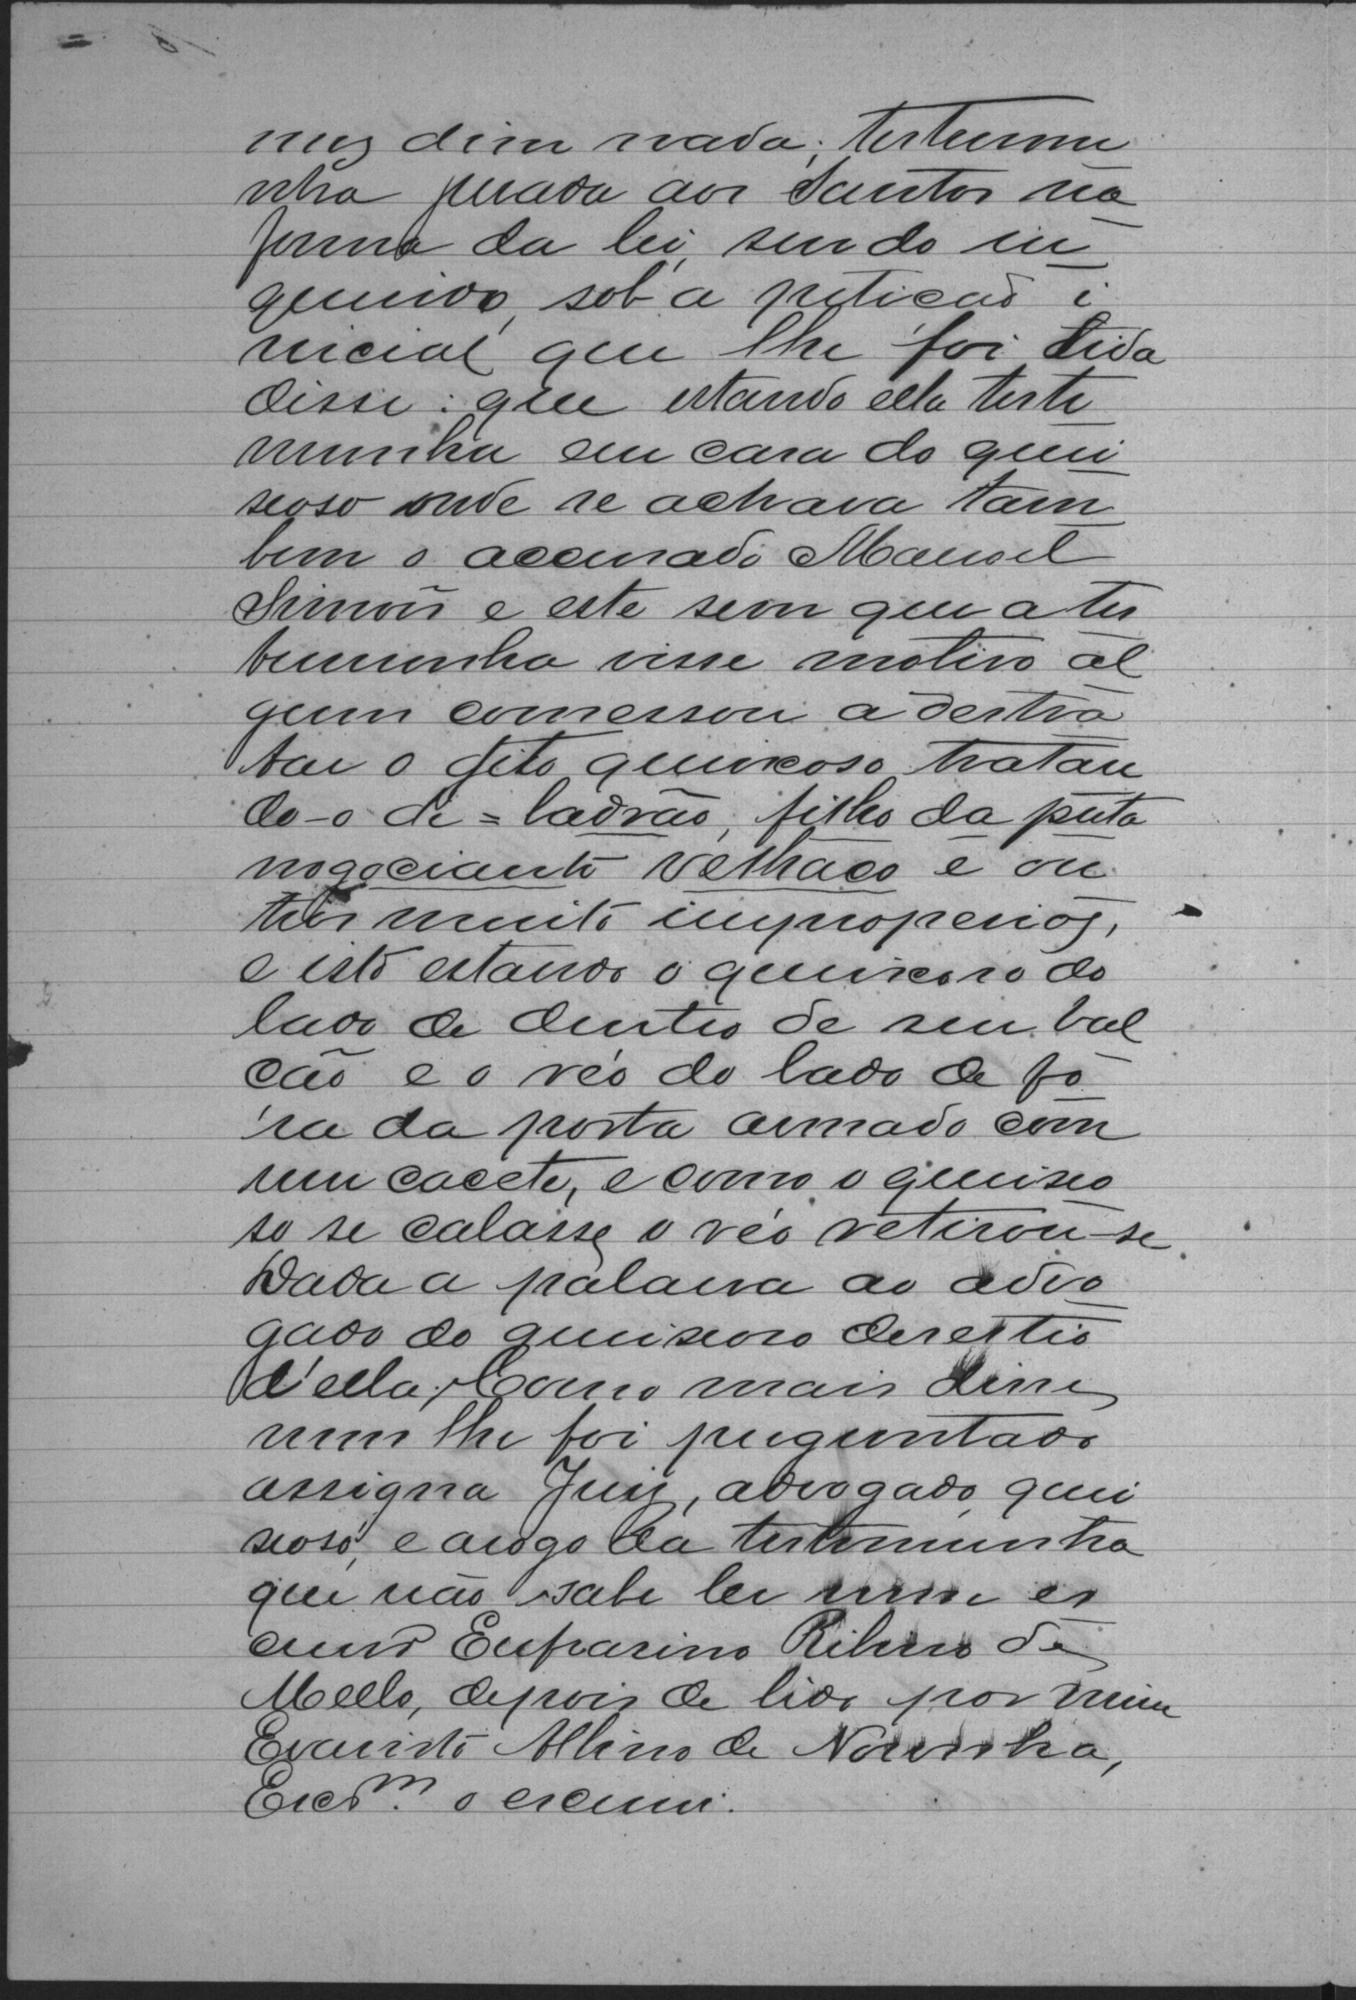 mes disse nada; testemu
nha jurada aos Santos na
forma da lei, sendo in
querido, sob a petição i
nicial que lhe foi lida
disse: que estando ella teste
munha em casa do quei
xoso onde se achava tam
bem o accusado Manoel
Simoñ e este sem que a tes
temunha visse motivo al
gum comessou a destra
tar o dito queixoso tratan
do-o de = ladrão, filho da puta
nogociante velhaco e ou
tros muito improperios,
e isto estando o queixoso do
lado de dentro de seu bal
cão e o réo do lado de fo
ra da porta armado com
um cacete, e como o queixo
so se calasse o réo retirou-se.
Dada a palavra ao advo
gado do queixoso desestio
d'ella, Como mais disse
nem lhe foi preguntado
assigna Juiz, advogado quei
xoso, e arogo da testemunha
que não sabe ler nem es
crever Eufrasino Ribeiro de
Mello, depois de lido por mim
Evaristo Albino de Noronha,
Escr.m o escrevi.